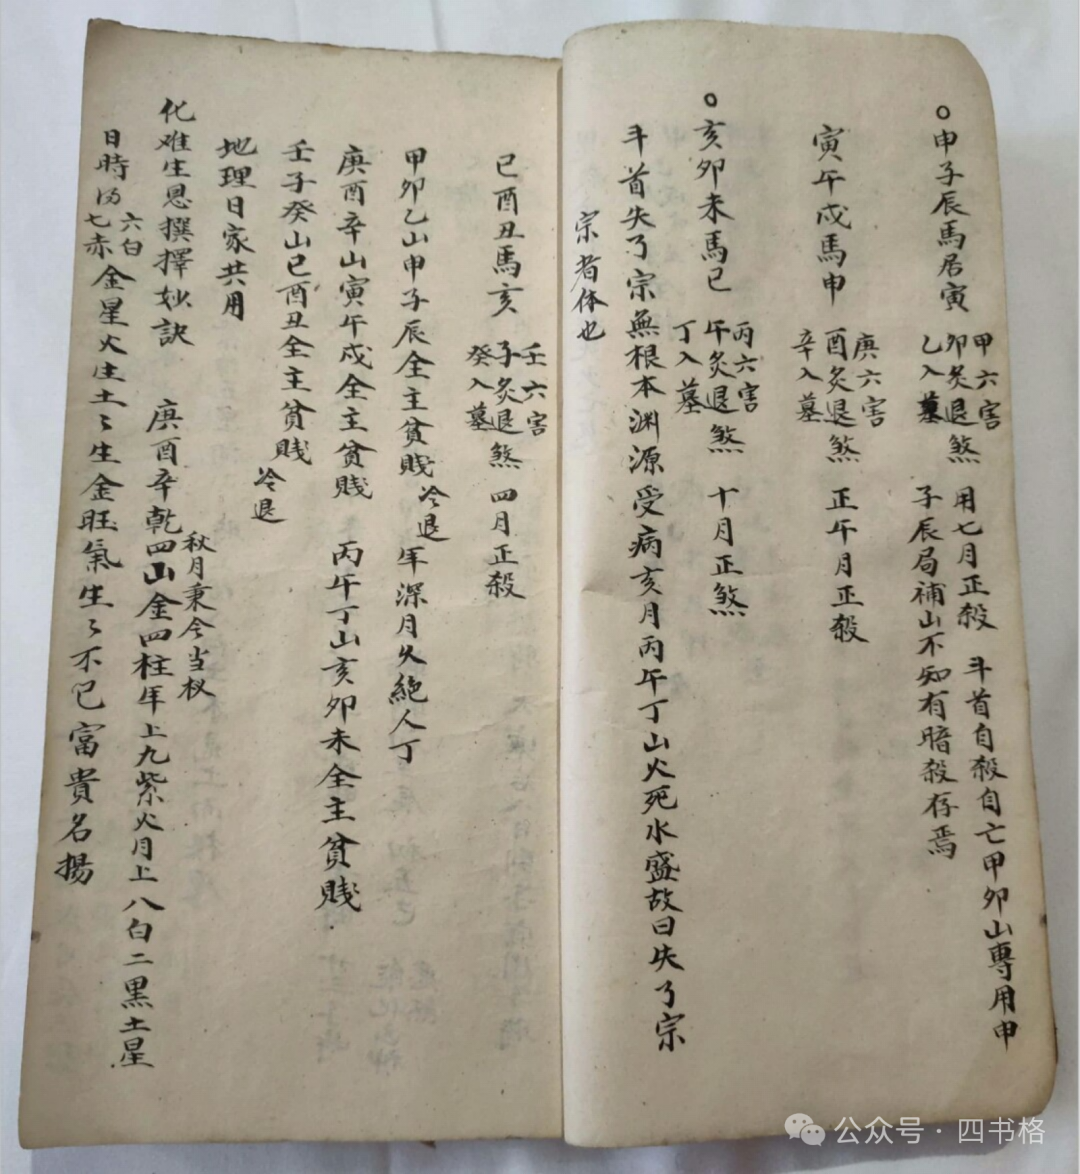 ○申子辰馬居寅
甲六害
卯炙退煞
乙入墓
用七月正殺 斗首自殺自亡甲卯山專用申
子辰局補山不知有暗殺存焉
寅午戌馬申
庚六害
酉炙退煞
辛入墓
正午月正殺
○亥卯未馬巳
丙六害
午炙退煞
丁入墓
十月正煞
斗首失了宗無根本渊源受病亥月丙午丁山火死水盛故曰失了宗
宗者体也
巳酉丑馬亥
壬六害
子炙退煞
癸入墓
四月正殺
甲卯乙山申子辰全主貧賤冷退年深月久絕人丁
庚酉辛山寅午戌全主貧賤 丙午丁山亥卯未全主貧賤
壬子癸山巳酉丑全主貧賤冷退
地理日家共用
化难生恩撰擇妙訣 庚酉辛乾四山金四柱年上九紫火月上八白二黑土星
秋月秉令当权
日時 六白
七赤
金星火生土〻生金旺氣生〻不已富貴名揚
公众号·四书格